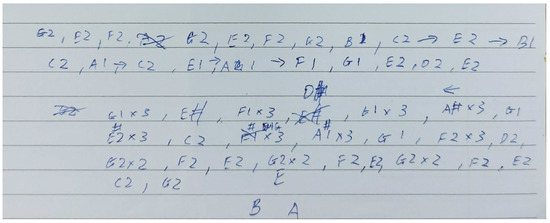 G2, E2, F2, G2, E2, F2, G2, B1, C2 → E2 → B1
C2, A1 → C2, E1 → → F1, G1, E2, D2, E2
D#
G1×3, E#, F1×3, G1×3, A#×3, G1
E2×3, C2, ×3, A1#×3, G1, F2×3, D2,
G2×2, F2, E2, G2×2, F2, E2, G2×2, F2, E2
C2, G2 E
B A